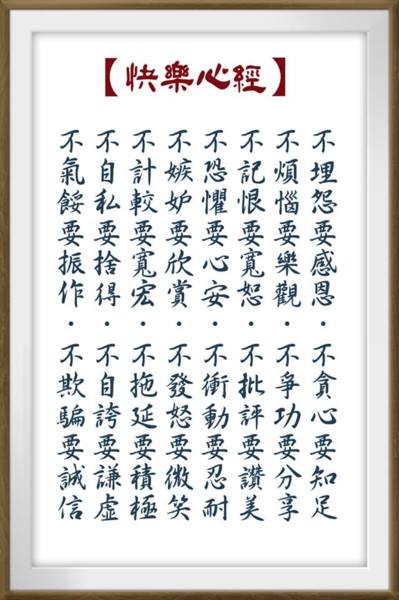 【快樂心經】
不埋怨要感恩・不貪心要知足
不煩惱要樂觀・不爭功要分享
不記恨要寬恕・不批評要讚美
不恐懼要心安・不衝動要忍耐
不嫉妒要欣賞・不發怒要微笑
不計較要寬宏・不拖延要積極
不自私要捨得・不自誇要謙虛
不氣餒要振作・不欺騙要誠信